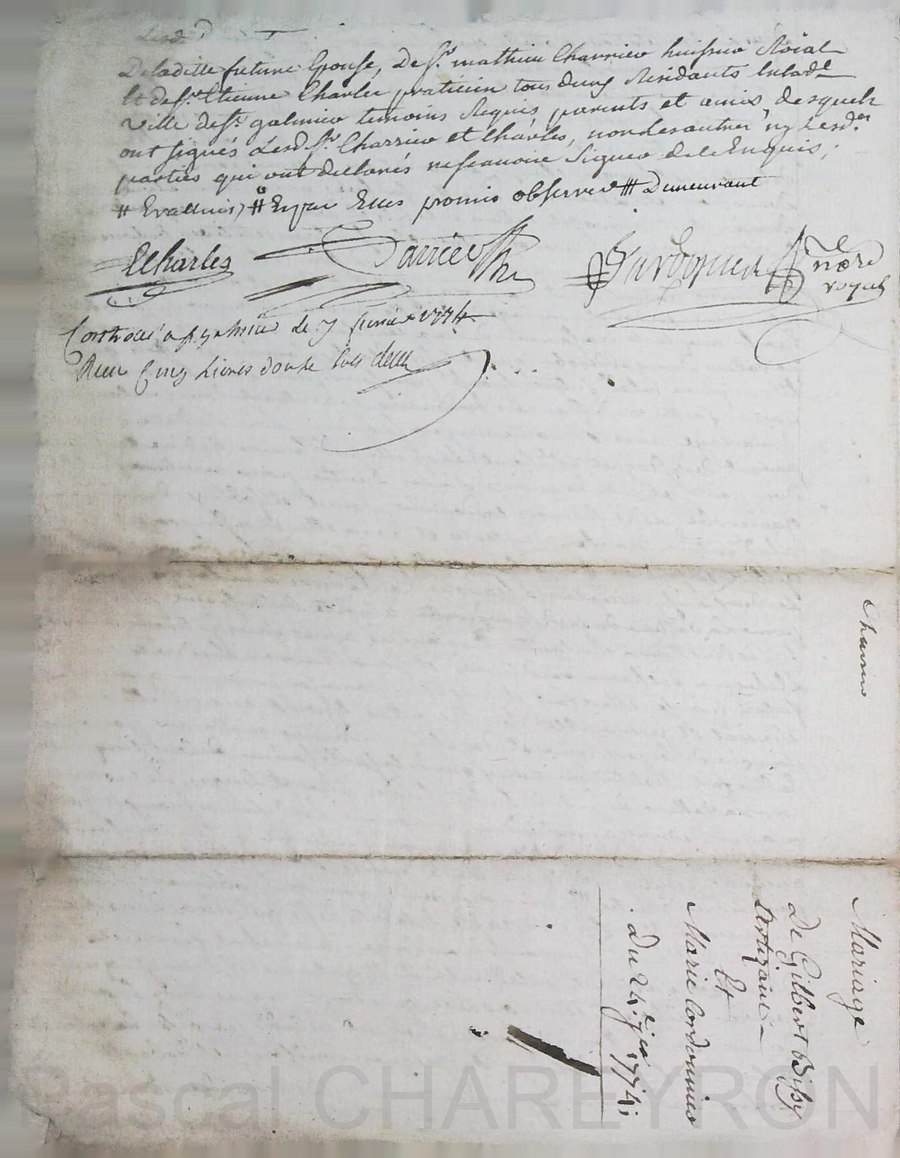 De laditte future Epouse, De Sr. mathieu Charrier huissier Roïal
Et de Sr. Etienne Charles praticien tous deux Residants En lad.e
ville de St. galmier temoins Requis, parents et amis, desquels
ont signés Lesd. Srs. Charrier et Charles, non Les autres ny Lesd.es
parties qui ont declarés ne scavoir Signer de ce Enquis,
promis observer # Demeurant
ECharles
Charrier
nore
royal
Controllé a St galmier Le 7 fevrier 1774
Reçu Cinq Livres douze sols
Charrier
Mariage
De Gilbert
Artizant
Et
Marie Cordonnier
Du 24e. jer 1774;
Pascal CHAREYRON